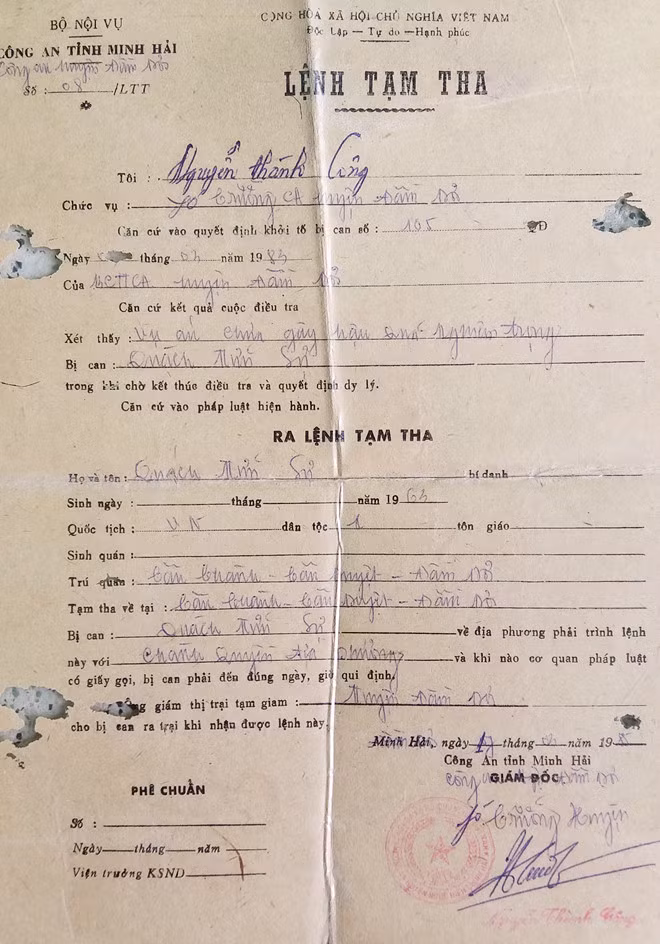 BỘ NỘI VỤ
CÔNG AN TỈNH MINH HẢI
Công an huyện Đầm Dơi
Số : 08 /LTT
CỘNG HÒA XÃ HỘI CHỦ NGHĨA VIỆT NAM
Độc Lập — Tự do — Hạnh phúc
LỆNH TẠM THA
Tôi : Nguyễn Thành Công
Chức vụ : Trưởng CA huyện Đầm Dơi
Căn cứ vào quyết định khởi tố bị can số : 105 QĐ
Ngày tháng 03 năm 1983
Của huyện Đầm Dơi
Căn cứ kết quả cuộc điều tra
Xét thấy : Vụ án chưa gây hậu quả nghiêm trọng
Bị can : Quách
trong khi chờ kết thúc điều tra và quyết định dy lý.
Căn cứ vào pháp luật hiện hành.
RA LỆNH TẠM THA
Họ và tên : Quách bí danh
Sinh ngày : tháng năm 1963
Quốc tịch : VN dân tộc tôn giáo
Sinh quán :
Trú quán : Đầm Dơi
Tạm tha về tại : Đầm Dơi
Bị can : Quách về địa phương phải trình lệnh
này với chánh quyền địa phương và khi nào cơ quan pháp luật
có giấy gọi, bị can phải đến đúng ngày, giờ qui định.
giám thị trại tạm giam : huyện Đầm Dơi
cho bị can ra trại khi nhận được lệnh này.
Minh Hải, ngày 17 tháng năm 198
Công An tỉnh Minh Hải
Công an Đầm Dơi
GIÁM ĐỐC
Trưởng huyện
PHÊ CHUẨN
Số :
Ngày tháng năm
Viện trưởng KSND
Nguyễn Thành Công